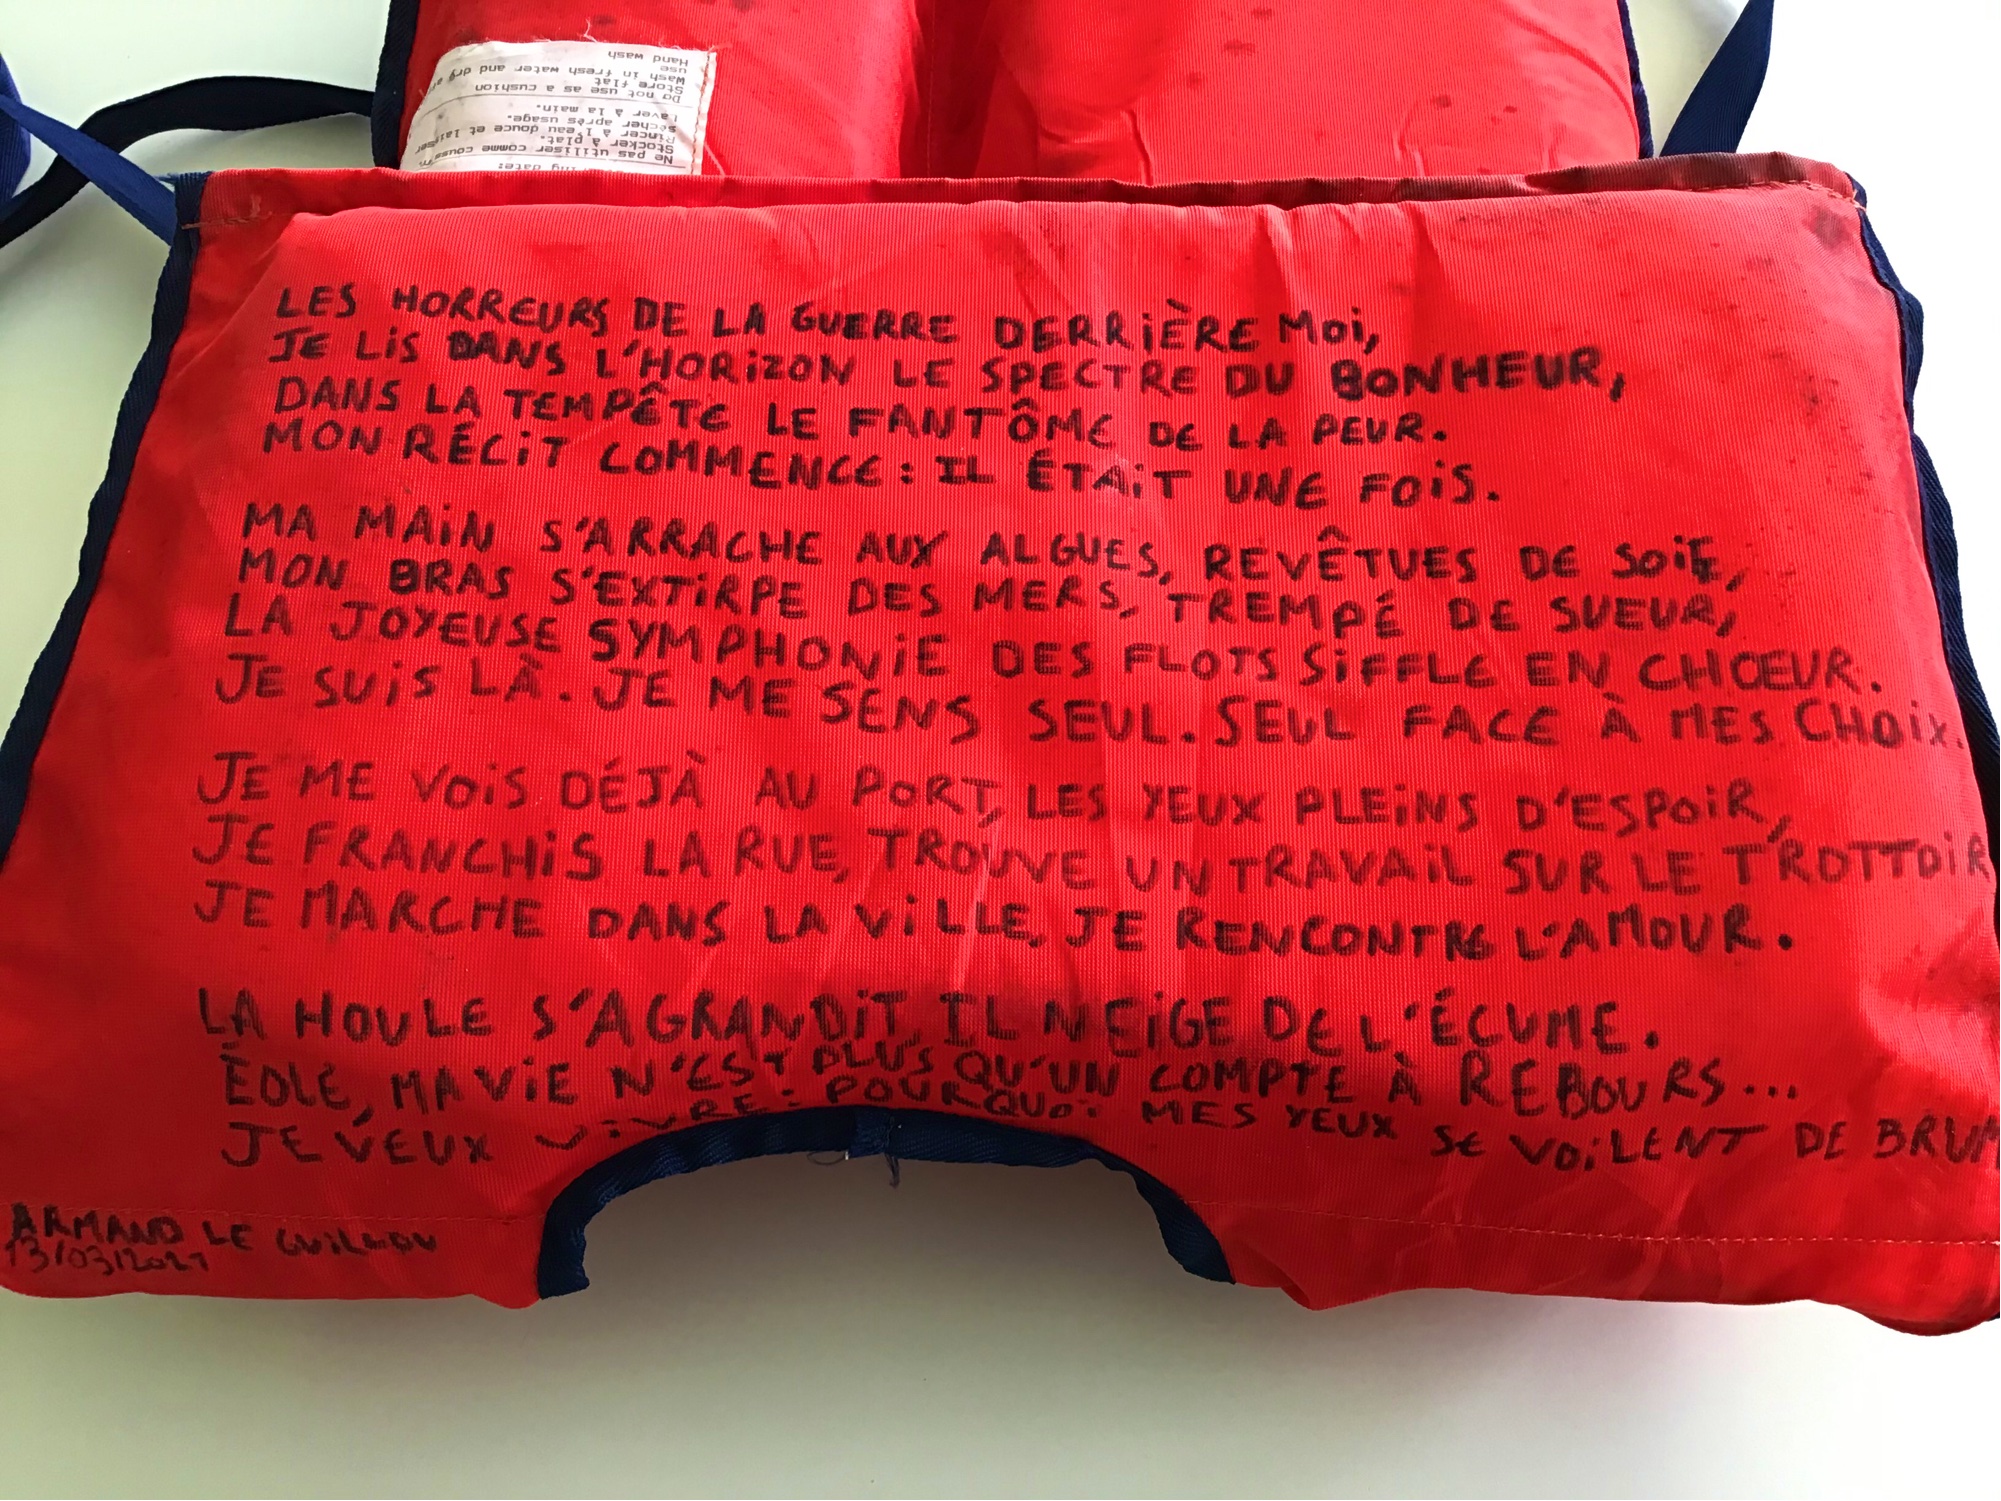 date:
Ne pas utiliser comme
Stocker à plat.
Rincer à l'eau douce et laisser
sécher après usage.
Laver à la main.
Do not use as a cushion
Store flat
Wash in fresh water and dry
use
Hand wash
LES HORREURS DE LA GUERRE DERRIÈRE MOI,
JE LIS DANS L'HORIZON LE SPECTRE DU BONHEUR,
DANS LA TEMPÊTE LE FANTÔME DE LA PEUR.
MON RÉCIT COMMENCE : IL ÉTAIT UNE FOIS.
MA MAIN S'ARRACHE AUX ALGUES, REVÊTUES DE SOIE,
MON BRAS S'EXTIRPE DES MERS, TREMPÉ DE SUEUR,
LA JOYEUSE SYMPHONIE DES FLOTS SIFFLE EN CHŒUR.
JE SUIS LÀ. JE ME SENS SEUL. SEUL FACE À MES CHOIX.
JE ME VOIS DÉJÀ AU PORT, LES YEUX PLEINS D'ESPOIR,
JE FRANCHIS LA RUE, TROUVE UN TRAVAIL SUR LE TROTTOIR
JE MARCHE DANS LA VILLE, JE RENCONTRE L'AMOUR.
LA HOULE S'AGRANDIT, IL NEIGE DE L'ÉCUME.
ÉOLE, MA VIE N'EST PLUS QU'UN COMPTE À REBOURS...
JE VEUX VIVRE : POURQUOI MES YEUX SE VOILENT DE BRUM
ARMAND LE GUILLOU
13/03/2021